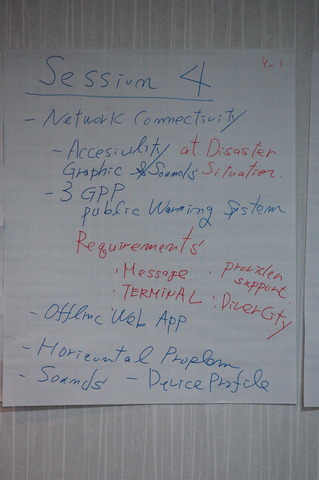 4-1
Session 4
- Network Connectivity
- Accesivility at Disaster
Graphic & Sounds Situation.
- 3GPP
public Warning System
Requirements
· Message · provider support
· TERMINAL · DiverCity
- Offline Web App
- Horizontal Proplem
- Sounds - Device Profile